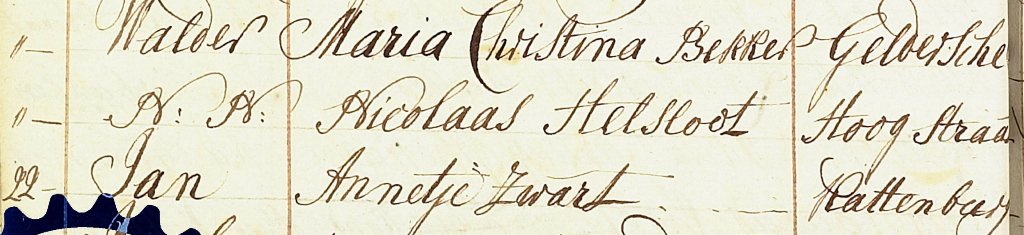 "— Walder Maria Christina Bekker Geldersche
"— N: N: Nicolaas Helsloot Hoog Straat
22— Jan Annetje Zwart . —